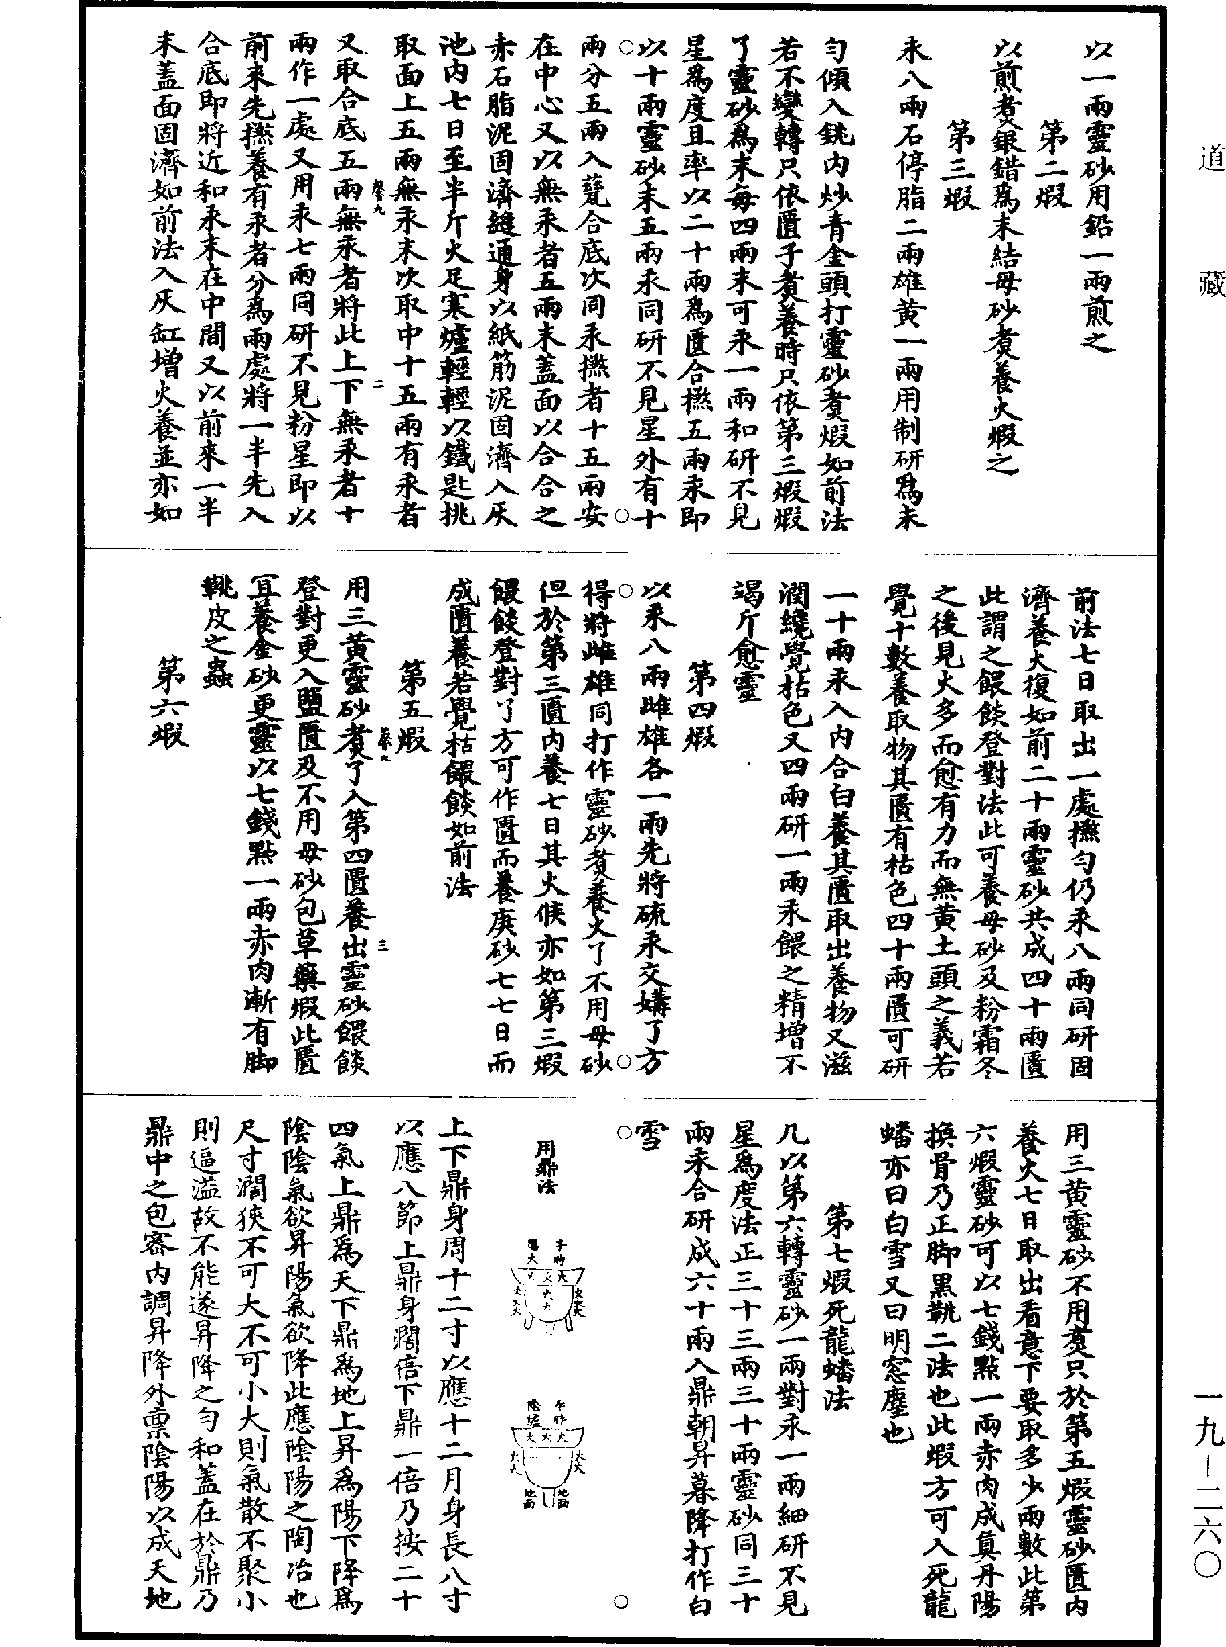 道藏
一九－二六〇
以一兩靈砂用鉛一兩煎之
第二煆
以煎煮銀錯為末結母砂煮養火煆之
第三煆
汞八兩石停脂二兩雄黄一兩用制研為末
勻傾入銚内炒青金頭打靈砂煮煆如前法
若不變轉只依匱子煮養時只依第三煆煆
了靈砂為末每四兩末可汞一兩和研不見
星為度且率以二十兩為匱合撚五兩汞即
以十兩靈砂末五兩汞同研不見星外有十
兩分五兩入甆合底次同汞撚者十五兩安
在中心又以無汞者五兩末蓋面以合合之
赤石脂泥固濟縫通身以紙筋泥固濟入灰
池内七日至半斤火足寒爐輕輕以鐵匙挑
取面上五兩無汞末次取中十五兩有汞者
又取合底五兩無汞者將此上下無汞者十
兩作一處又用汞七兩同研不見粉星即以
前來先撚養有汞者分為兩處將一半先入
合底即將近和汞末在中間又以前來一半
末蓋面固濟如前法入灰缸增火養並亦如
前法七日取出一處撚勻仍汞八兩同研固
濟養火復如前二十兩靈砂共成四十兩匱
此謂之餵餤登對法此可養母砂及粉霜冬
之後見火多而愈有力而無黄土頭之義若
覺十數養取物其匱有枯色四十兩匱可研
一十兩汞入内合白養其匱取出養物又滋
潤纔覺枯色又四兩研一兩汞餵之精增不
竭斤愈靈
第四煆
以汞八兩雌雄各一兩先將硫汞交媾了方
得將雌雄同打作靈砂煮養火了不用母砂
但於第三匱内養七日其火候亦如第三煆
餵餤登對了方可作匱而養庚砂七七日而
成匱養若覺枯餵餤如前法
第五煆
用三黄靈砂煮了入第四匱養出靈砂餵餤
登對更入鹽匱及不用母砂包草藥煆此匱
宜養金砂更靈以七錢點一兩赤肉漸有脚
靴皮之蟲
第六煆
用三黄靈砂不用煑只於第五煆靈砂匱内
養火七日取出看意下要取多少兩數此第
六煆靈砂可以七錢點一兩赤肉成真丹陽
換骨乃正脚黑靴二法也此煆方可入死龍
蟠亦曰白雪又曰明窓塵也
第七煆死龍蟠法
几以第六轉靈砂一兩對汞一兩細研不見
星為度法正三十三兩三十兩靈砂同三十
兩汞合研成六十兩入鼎朝昇暮降打作白
雪
用鼎法
上下鼎身周十二寸以應十二月身長八寸
以應八節上鼎身濶倍下鼎一倍乃按二十
四氣上鼎為天下鼎為地上昇為陽下降為
陰陰氣欲昇陽氣欲降此應陰陽之陶冶也
尺寸濶狹不可大不可小大則氣散不聚小
則逼溢故不能遂昇降之勻和蓋在於鼎乃
鼎中之包審内調昇降外禀陰陽以成天地